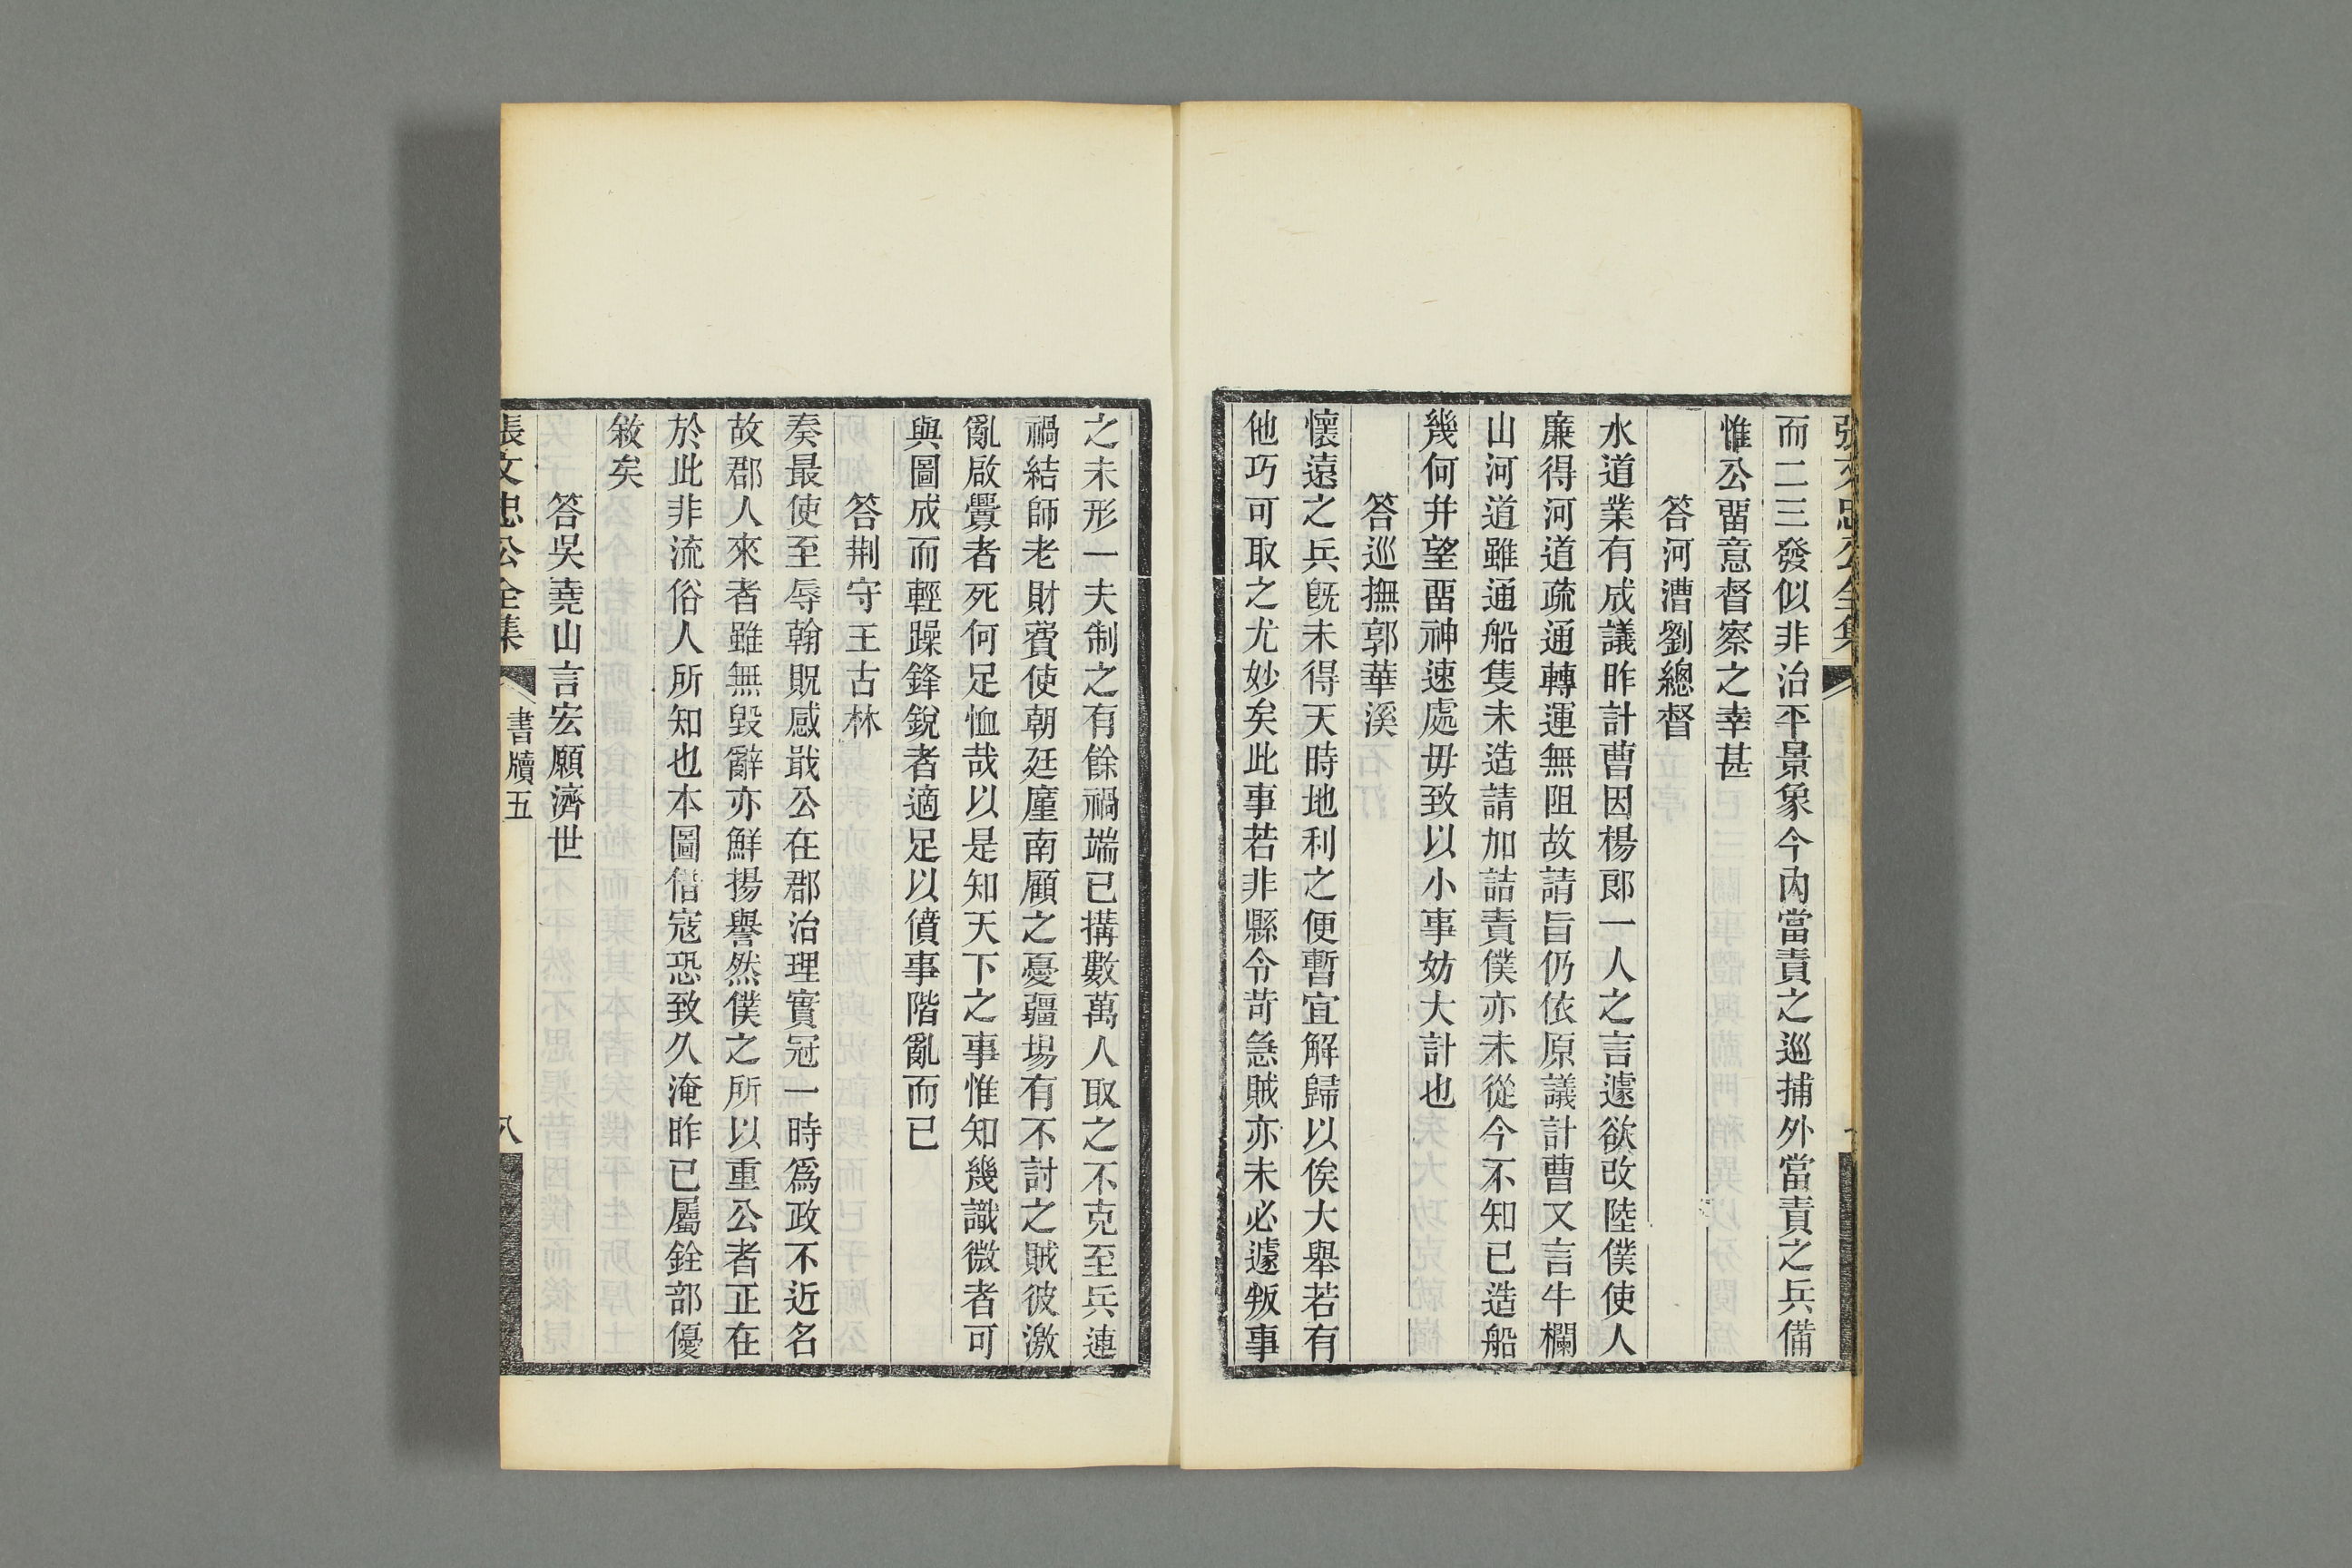 張文忠公全集
而二三發似非治平景象今內當責之巡捕外當責之兵備
惟公畱意督察之幸甚
答河漕劉總督
水道業有成議昨計曹因楊郎一人之言遽欲改陸僕使人
廉得河道疏通轉運無阻故請旨仍依原議計曹又言牛欄
山河道雖通船隻未造請加詰責僕亦未從今不知已造船
幾何幷望畱神速處毋致以小事妨大計也
答巡撫郭華溪
懷遠之兵旣未得天時地利之便暫宜解歸以俟大舉若有
他巧可取之尤妙矣此事若非縣令苛急賊亦未必遽叛事
之未形一夫制之有餘禍端已搆數萬人取之不克至兵連
禍結師老財費使朝廷廑南顧之憂疆埸有不討之賊彼激
亂啟釁者死何足恤哉以是知天下之事惟知幾識微者可
與圖成而輕躁鋒銳者適足以僨事階亂而已
答荆守王古林
奏最使至辱翰貺感戢公在郡治理實冠一時爲政不近名
故郡人來者雖無毀辭亦鮮揚譽然僕之所以重公者正在
於此非流俗人所知也本圖借寇恐致久淹昨已屬銓部優
敘矣
答吳堯山言宏願濟世
張文忠公全集
書牘五
八